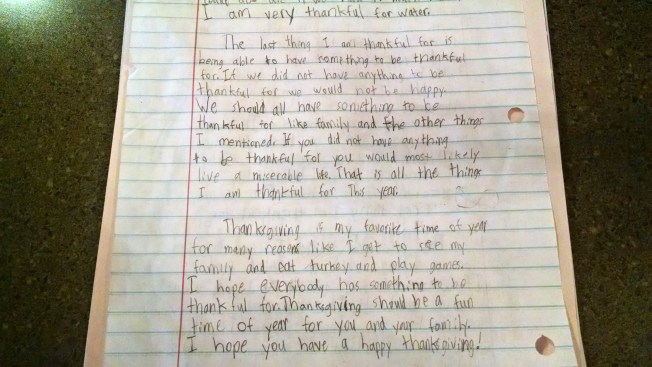 I am very thankful for water.
The last thing I am thankful for is
being able to have somithyng to be thankful
for. If we did not have anything to be
thankful for we would not be happy.
We should all have something to be
thankful for like family and the other things
I mentioned. If you did not have anything
to be thankful for you would most likely
live a miserable life. That is all the things
I am thankful for This year.
Thanksgiving is my favorite time of year
for many reasons like I get to see my
family and eat turkey and play games.
I hope everybody has something to be
thankful for. Thanksgiving should be a fun
time of year for you and your family.
I hope you have a happy thanksgiving!